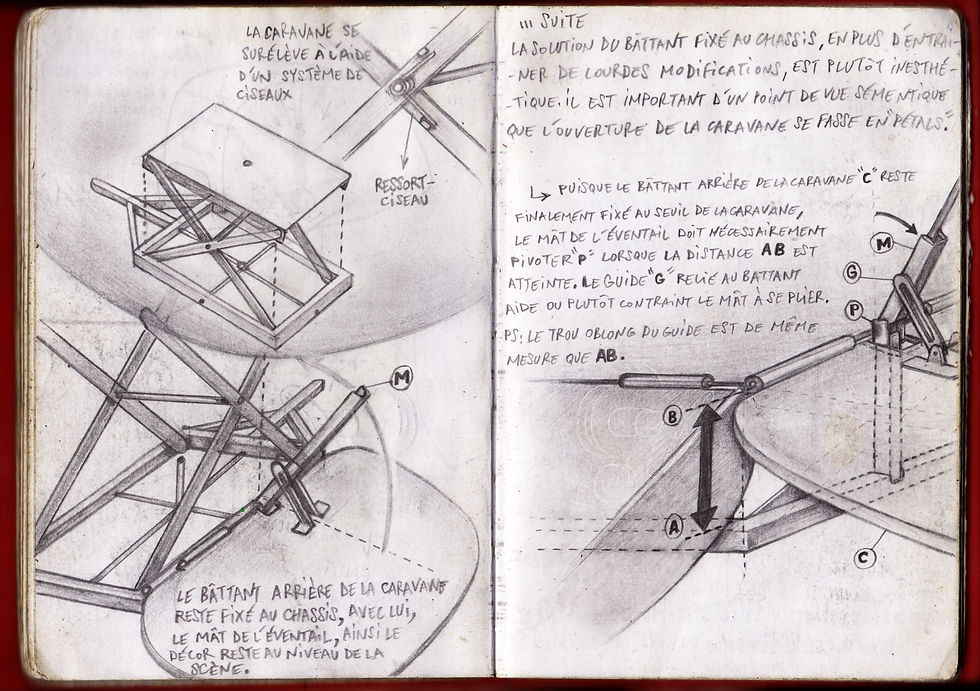 LA CARAVANE SE
SURÉLÈVE À L'AIDE
D'UN SYSTÈME DE
CISEAUX
RESSORT-
CISEAU
M
LE BÂTTANT ARRIÈRE DE LA CARAVANE
RESTE FIXÉ AU CHASSIS, AVEC LUI,
LE MÂT DE L'ÉVENTAIL, AINSI LE
DÉCOR RESTE AU NIVEAU DE LA
SCÈNE.
... SUITE
LA SOLUTION DU BÂTTANT FIXÉ AU CHASSIS, EN PLUS D'ENTRAI-
-NER DE LOURDES MODIFICATIONS, EST PLUTÔT INESTHÉ-
-TIQUE. IL EST IMPORTANT D'UN POINT DE VUE SÉMENTIQUE
QUE L'OUVERTURE DE LA CARAVANE SE FASSE EN "PÉTALS."
↳ PUISQUE LE BÂTTANT ARRIÈRE DE LA CARAVANE "C" RESTE
FINALEMENT FIXÉ AU SEUIL DE LA CARAVANE,
LE MÂT DE L'ÉVENTAIL DOIT NÉCESSAIREMENT
PIVOTER "P" LORSQUE LA DISTANCE AB EST
ATTEINTE. LE GUIDE "G" RELIÉ AU BATTANT
AIDE OU PLUTÔT CONTRAINT LE MÂT À SE PLIER.
PS: LE TROU OBLONG DU GUIDE EST DE MÊME
MESURE QUE AB.
M
G
P
B
A
C